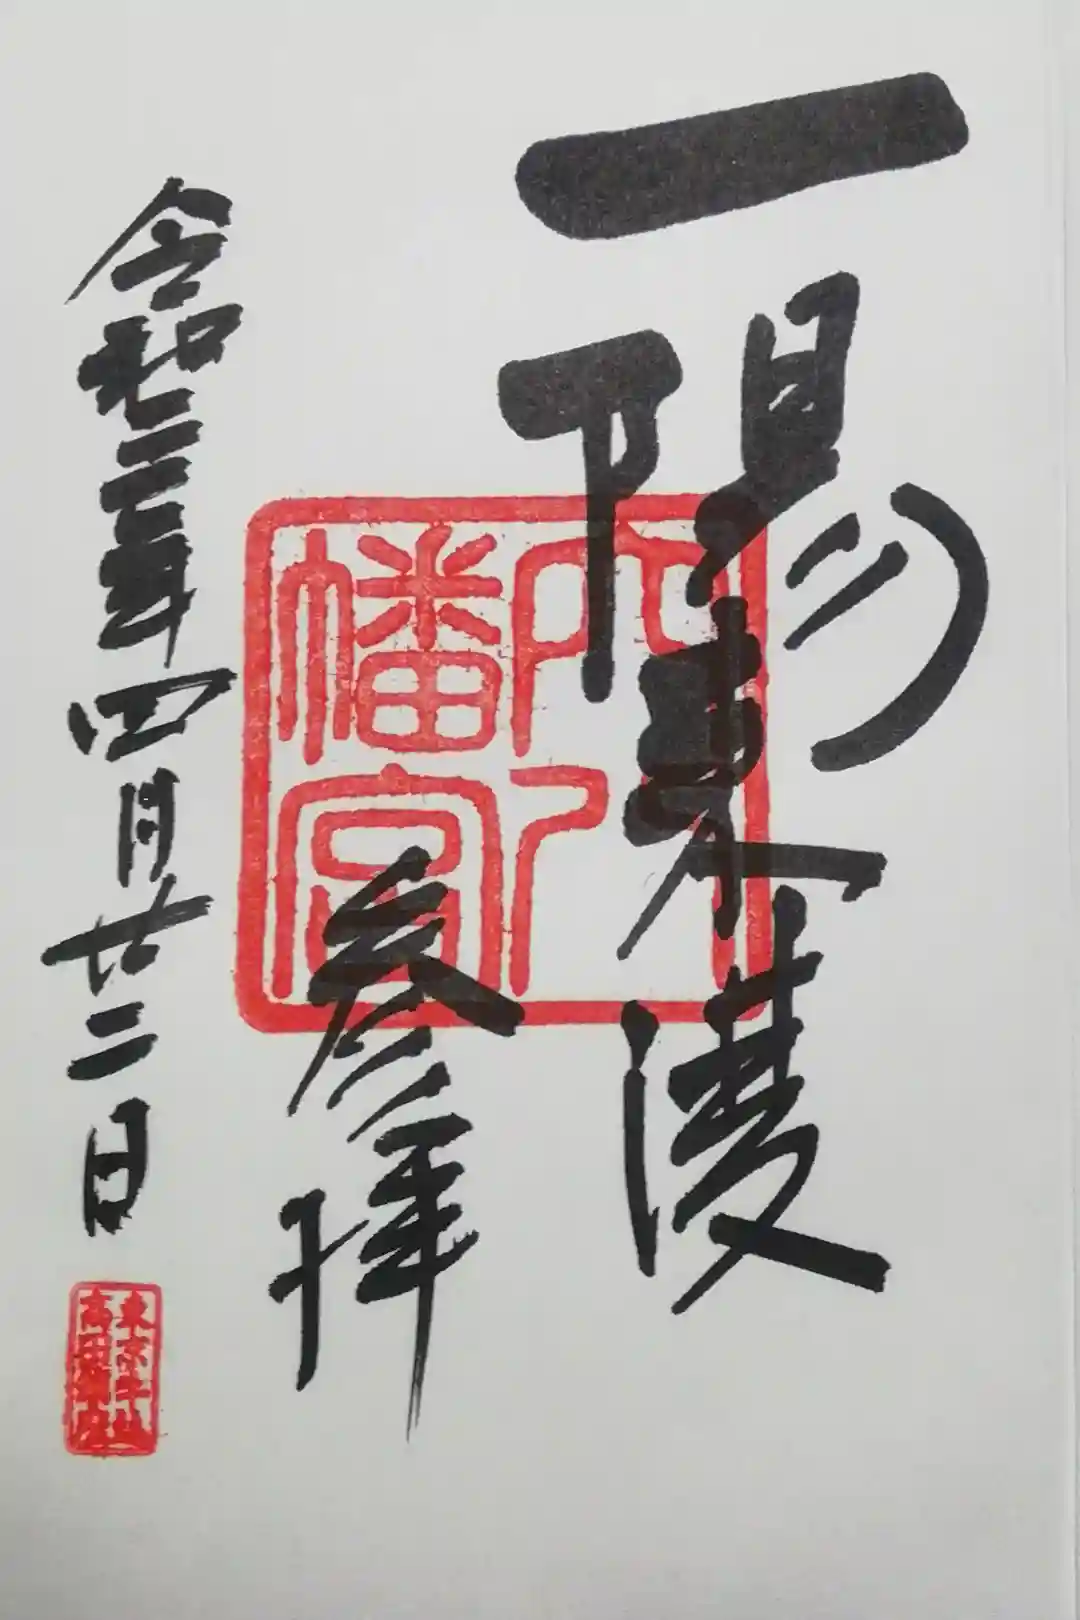 一陽来復
穴八
幡宮
参拝
令和三年四月廿二日
東京牛込
高田鎮座